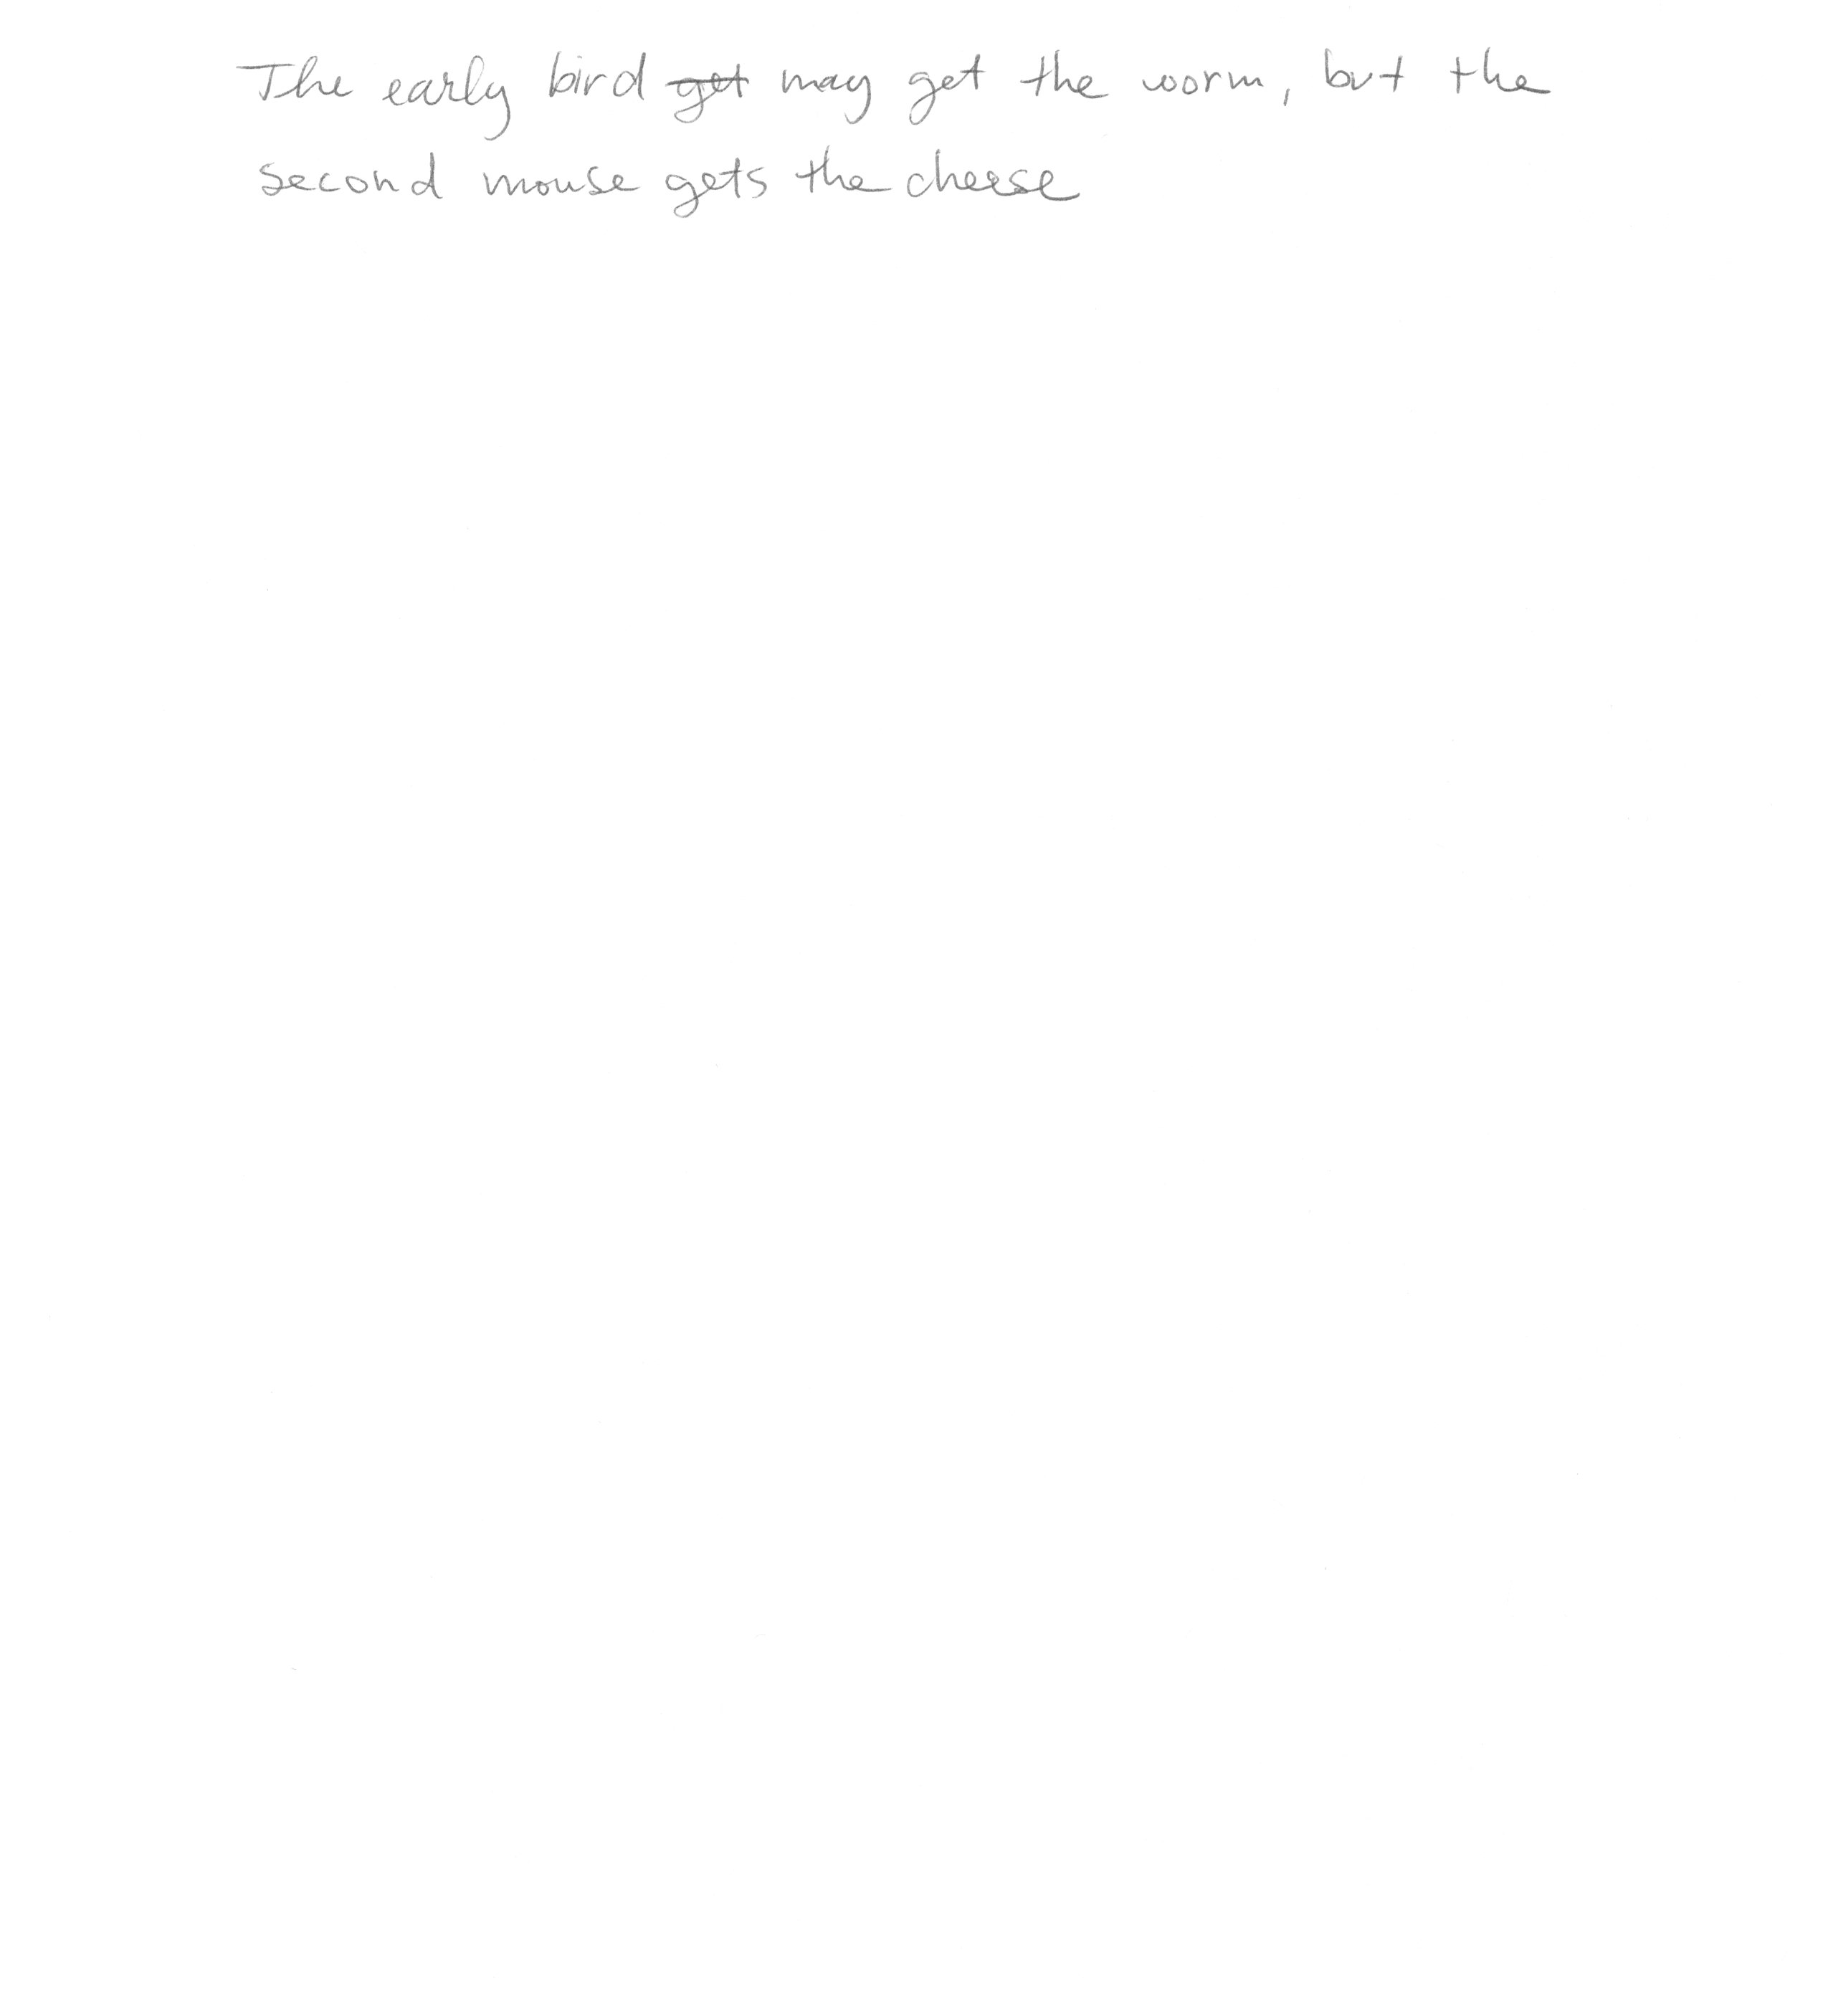 The early bird get may get the worm, but the
second mouse gets the cheese